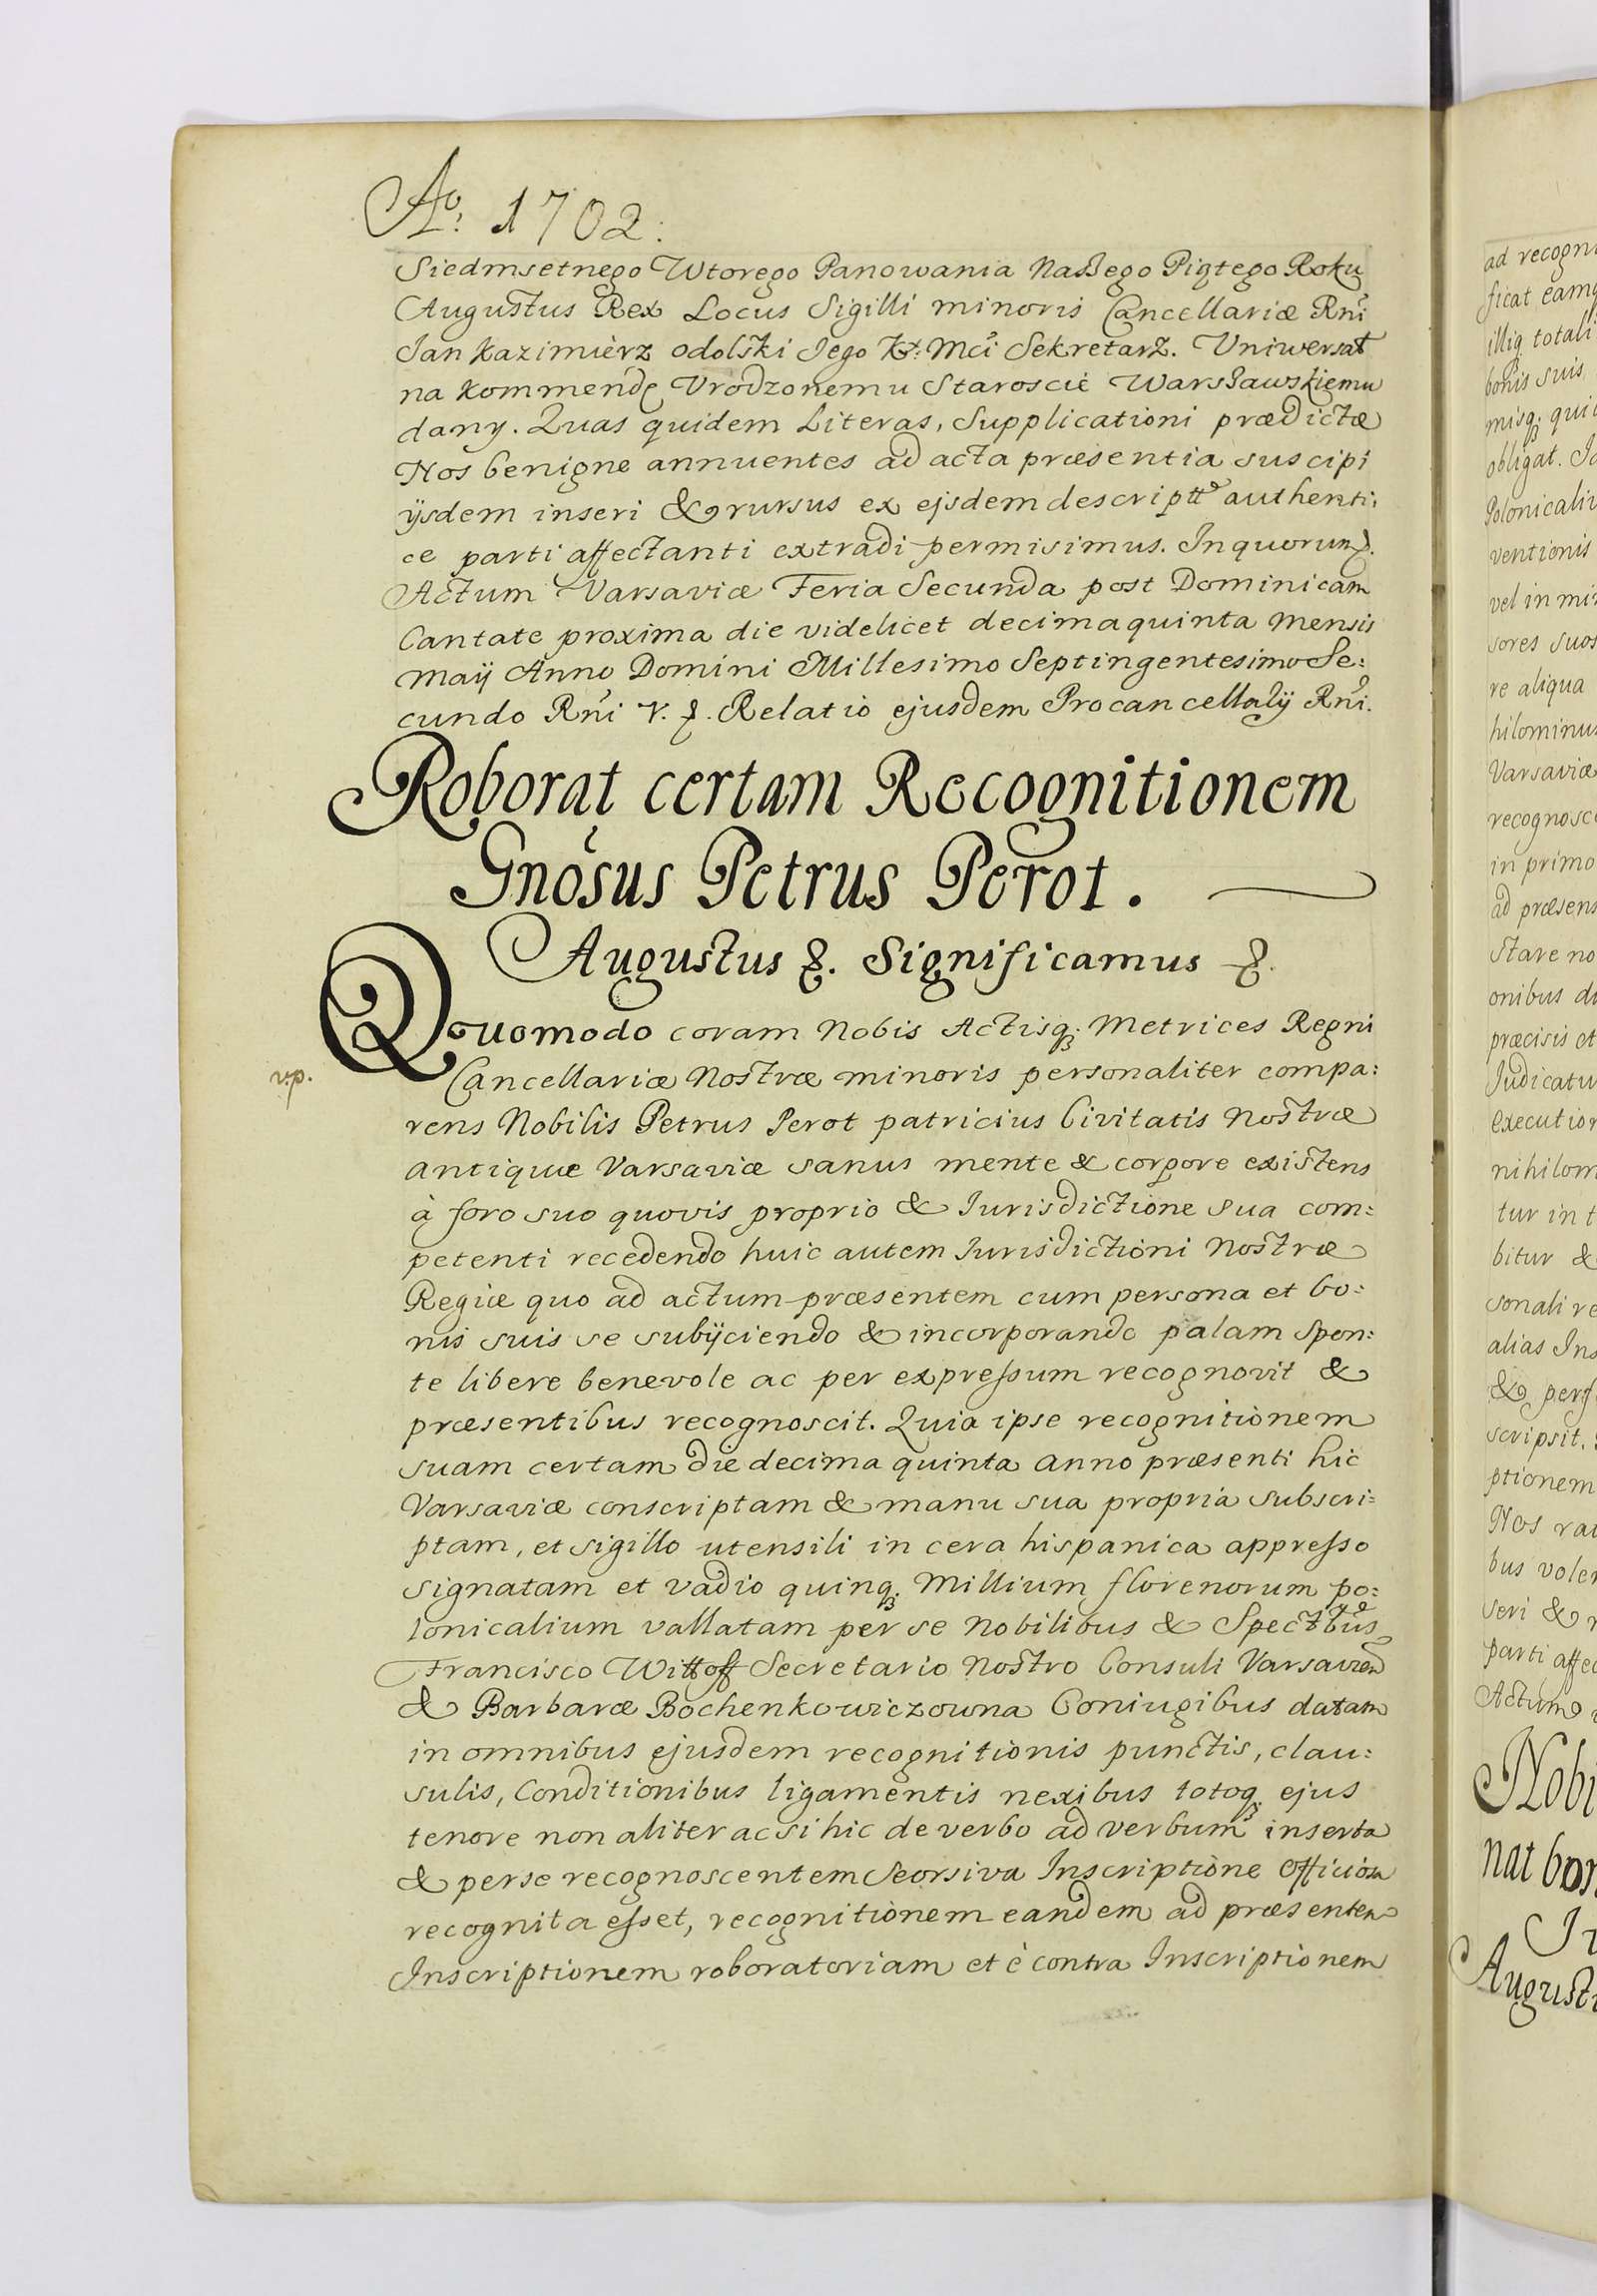 Ao. 1702.
Siedmsetnego Wtorego Panowania Naszego Piątego Roku
Augustus Rex Locus Sigilli minoris Cancellariæ Rni
Jan Kazimierz Odolski Jego K. Mci Sekretarz. Uniwersał
na Kommendę Vrodzonemu Staroscie Warszawskiemu
dany. Quas quidem Literas, Supplicationi prædictæ
Nos benigne annuentes ad acta præsentia suscipi
ijsdem inseri & rursus ex ejsdem descriptt authenti:
ce parti affectanti extradi permisimus. In quorum
Actum Varsaviæ Feria Secunda post Dominicam
Cantate proxima die videlicet decima quinta mensis
Maij Anno Domini Millesimo Septingentesimo Se:
cundo Rni V. Relatio ejusdem Procancellarij Rni.
Roborat certam Recognitionem
Gnosus Petrus Perot.
Augustus &. Significamus &.
v.p.
Quomodo coram Nobis Actisq; Metrices Regni
Cancellariæ Nostræ minoris personaliter compa:
rens Nobilis Petrus Perot patricius Civitatis Nostræ
antiquæ Varsaviæ sanus mente & corpore existens
à foro suo quovis proprio & Iurisdictione sua com:
petenti recedendo huic autem Iurisdictioni Nostræ
Regiæ quo ad actum præsentem cum persona et bo:
nis suis se subijciendo & incorporando palam spon:
te libere benevole ac per expressum recognovit &
præsentibus recognoscit. Quia ipse recognitionem
suam certam die decima quinta anno præsenti hic
Varsaviæ conscriptam & manu sua propria subscri:
ptam, et sigillo utensili in cera hispanica appresso
signatam et vadio quinq; Millium florenorum po:
lonicalium vallatam per se Nobilibus & Spectbus
Francisco Wittoff Secretario Nostro Consuli Varsavien
& Barbaræ Bochenkowiczowna Coniugibus datam
in omnibus ejusdem recognitionis punctis, clau:
sulis, Conditionibus ligamentis nexibus totoq; ejus
tenore non aliter ac si hic de verbo ad verbum inserta
& per se recognoscentem Seorsiva Inscriptione Officiosa
recognita esset, recognitionem eandem ad præsentem
Inscriptionem roboratoriam et è contra Inscriptionem
ad
ficat
totali
bonis suis
misq;
obligat.
ventionis
vel in
sores suos
re aliqua
Varsaviæ
in primo
ad
stare
onibus
præcisis et
tur in
bitur &
alias
&
scripsit.
ptionem
Nos
bus
seri &
parti
Actum
nat